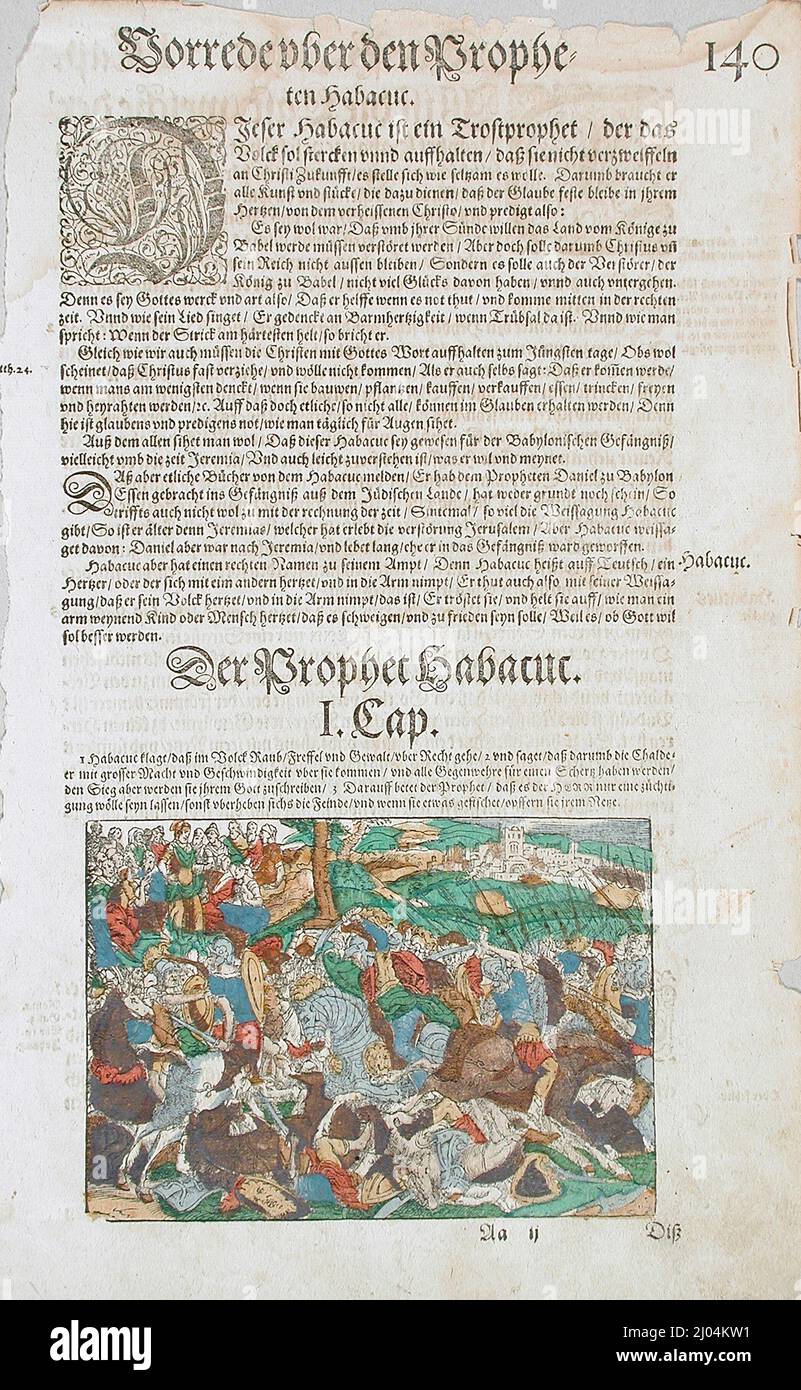 Vorrede vber den Prophe-
140
ten Habacuc.
DIeser Habacuc ist ein Trostprophet / der das
Volck sol stercken vnnd auffhalten / daß sie nicht verzweiffeln
an Christi Zukunfft / es stelle sich wie seltzam es wolle. Darumb braucht er
alle Kunst vnd stücke / die dazu dienen / daß der Glaube feste bleibe in jhrem
Hertzen / von dem verheissenen Christo / vnd predigt also:
Es sey wol war / Daß vmb jhrer Sünde willen das Land vom Könige zu
Babel werde müssen verstöret werden / Aber doch solle darumb Christus vñ
sein Reich nicht aussen bleiben / Sondern es solle auch der Verstörer / der
König zu Babel / nicht viel Glücks davon haben / vnnd auch vntergehen.
Denn es sey Gottes werck vnd art also / Daß er helffe wenn es not thut / vnd komme mitten in der rechten
zeit. Vnnd wie sein Lied singet / Er gedenckt an Barmhertzigkeit / wenn Trübsal da ist. Vnnd wie man
spricht: Wenn der Strick am härtesten helt / so bricht er.
Gleich wie wir auch müssen die Christen mit Gottes Wort auffhalten zum Jüngsten tage / Obs wol
tth. 24.
scheinet / daß Christus fast verziehe / vnd wölle nicht kommen / Als er auch selbs sagt: Daß er kom̃en werde /
wenn mans am wenigsten denckt / wenn sie bauwen / pflantzen / kauffen / verkauffen / essen / trincken / freyen
vnd heyrahten werden / ꝛc. Auff daß doch etliche / so nicht alle / können im Glauben erhalten werden / Denn
hie ist glaubens vnd predigens not / wie man täglich für Augen sihet.
Auß dem allen sihet man wol / Daß dieser Habacuc sey gewesen für der Babylonischen Gefängniß /
vielleicht vmb die zeit Jeremia / Vnd auch leicht zuverstehen ist / was er wil vnd meynet.
DAß aber etliche Bücher von dem Habacuc melden / Er hab dem Propheten Daniel zu Babylon
Essen gebracht ins Gefängniß auß dem Jüdischen Lande / hat weder grundt noch schein / So
triffts auch nicht wol zu mit der rechnung der zeit / Sintemal / so viel die Weissagung Habacuc
gibt / So ist er älter denn Jeremias / welcher hat erlebt die verstörung Jerusalem / Aber Habacuc weissa-
get davon: Daniel aber war nach Jeremia / vnd lebet lang / ehe er in das Gefängniß ward geworffen.
Habacuc aber hat einen rechten Namen zu seinem Ampt / Denn Habacuc heißt auff Teutsch / ein
Habacuc.
Hertzer / oder der sich mit eim andern hertzet / vnd in die Arm nimpt / Er thut auch also mit seiner Weissa-
gung / daß er sein Volck hertzet / vnd in die Arm nimpt / das ist / Er tröstet sie / vnd helt sie auff / wie man ein
arm weynend Kind oder Mensch hertzet / daß es schweigen / vnd zu frieden seyn solle / Weil es / ob Gott wil
sol besser werden.
Der Prophet Habacuc.
I. Cap.
1 Habacuc klagt / daß im Volck Raub / Freffel vnd Gewalt / vber Recht gehe / 2 vnd saget / daß darumb die Chalde-
er mit grosser Macht vnd Geschwindigkeit vber sie kommen / vnd alle Gegenwehre für einen Schertz haben werden /
den Sieg aber werden sie jhrem Gott zuschreiben / 3 Darauff betet der Prophet / daß es der HERR nur eine züchti-
gung wölle seyn lassen / sonst vberheben sichs die Feinde / vnd wenn sie etwas gefischet / opffern sie jrem Netze.
Aa ij
Diß
alamy
Image ID: 2J04KW1
www.alamy.com